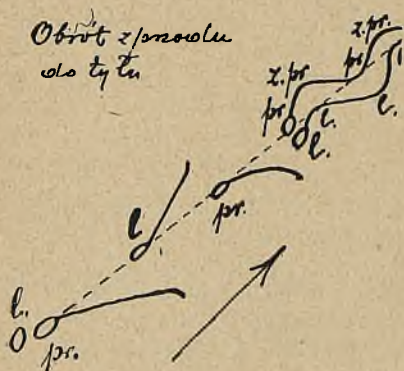 Obrót z przodu
do tyłu
z. pr.
z. pr
pr
pr
l.
l.
l.
l
pr.
l.
pr.